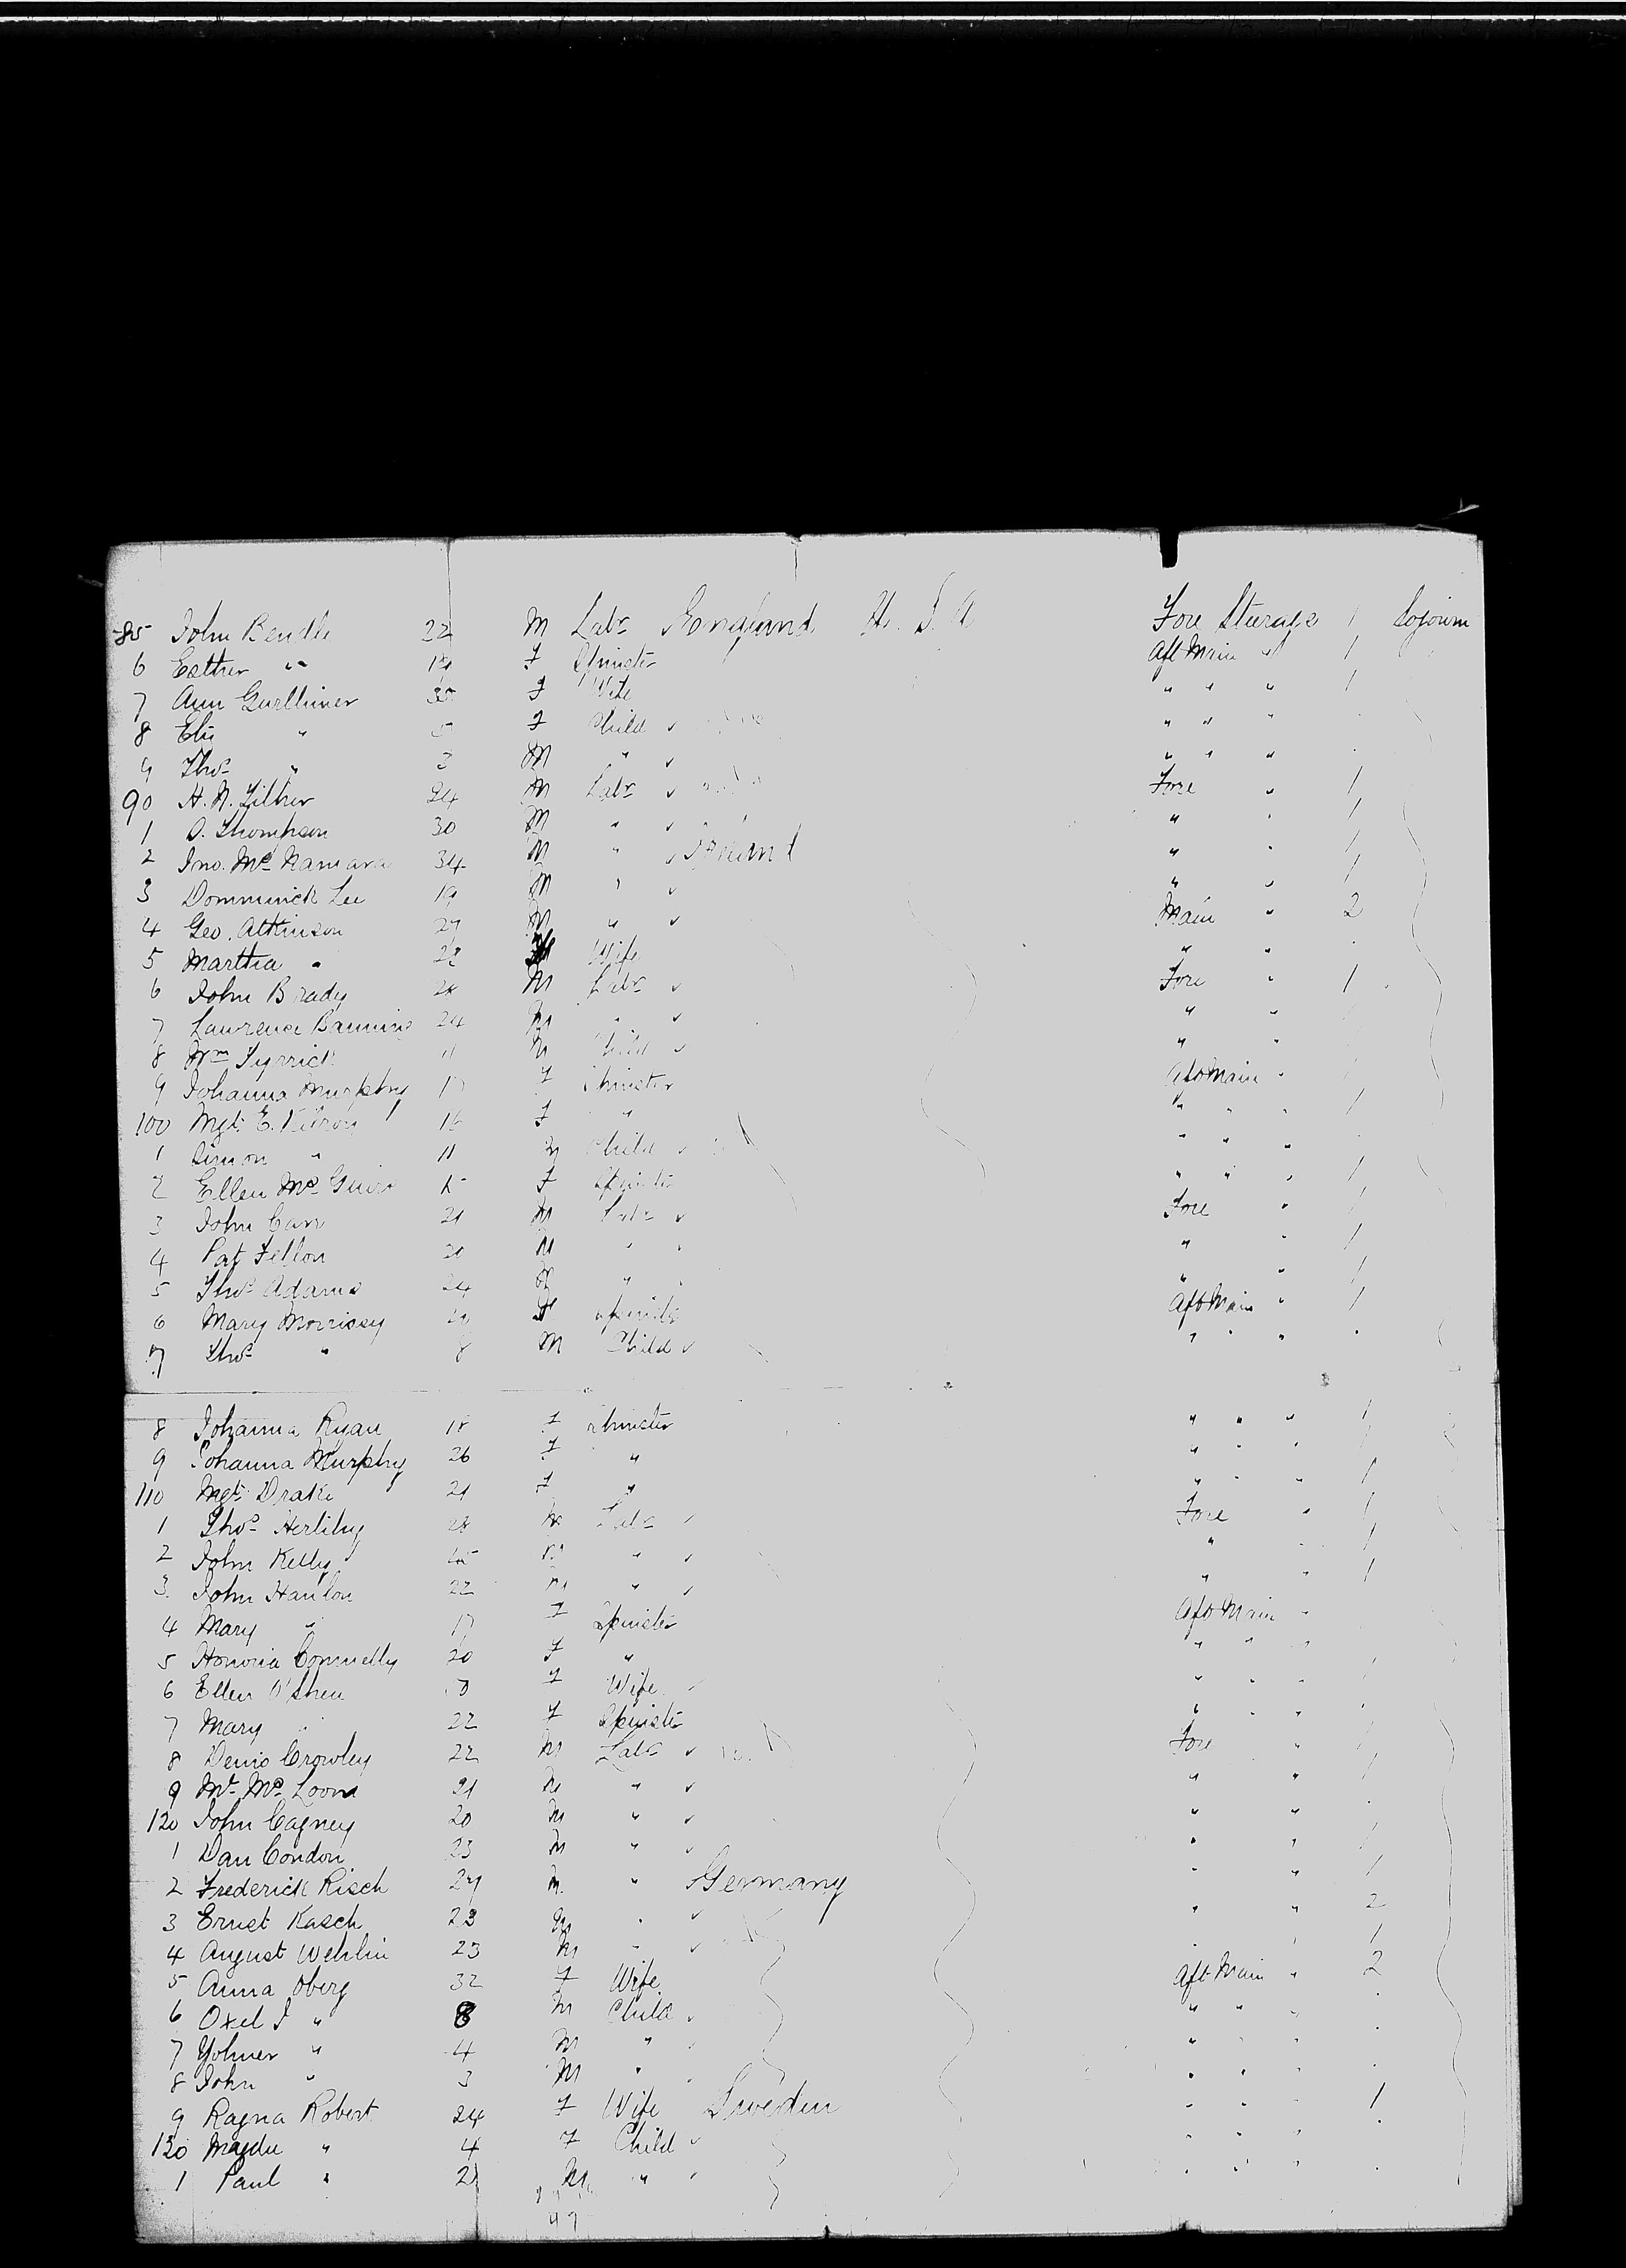 85 John Bendle 22 M Labr England U.S.A Fore Steerage 1 Sojourn
6 Esther " 19 F Spinster Aft Main " 1
7 Ann 35 F Wife " " " 1
8 " F Child " " "
9 Thos " 3 M " " " "
90 24 M Labr Fore " 1
1 Thompson 30 M " " " 1
2 Jno. McNamara 34 M " " " 1
3 Domminick Lee 19 M " " " 1
4 Geo. Atkinson 27 M " Main " 2
5 Martha " 22 Wife " "
6 John Brady 28 M Labr Fore " 1
7 Lawrence 24 M " " "
8 Wm 11 M Child " "
9 Johanna Murphy 17 F Spinster Aft Main "
100 Mgt. E. 16 F " " " " 1
1 Simon " 11 M Child " " "
2 Ellen McGuire F Spinster " " " 1
3 John Carr 21 M Labr Fore " 1
4 Pat Fellon 20 M " " " 1
5 Thos Adams 24 M " " " 1
6 Mary Morrissey F Spinster Aft Main " 1
7 Thos " 8 M Child " " "
8 Johanna Ryan 18 F Spinster " " " 1
9 Johanna Murphy 26 F " " " " 1
110 Mgt. Drake 21 F " " " " 1
1 Thos Herlihy 28 M Labr Fore " 1
2 John Kelly M " " " 1
3 John Hanlon 22 M " " " 1
4 Mary " 17 F Spinster Aft Main "
5 Honoria Connelly 20 F " " " "
6 Ellen O'Shea F Wife " " "
7 Mary " 22 F Spinster " " "
8 Denis Crowley 22 M Labr Fore "
9 21 M " " " 1
120 John Cagney 20 M " " "
1 Dan Condon 23 M " " " 1
2 Frederick Risch 27 M " Germany " " 1
3 Ernst Kasch 23 M " " " 2
4 August Wehlin 23 M " " " 1
5 Anna Oberg 32 F Wife Aft Main " 2
6 Oxel J " 8 M Child " " "
7 Yohner " 4 M " " " "
8 John " 3 M " " " "
9 Ragna Robert 24 F Wife Sweden " " " 1
130 " 4 F Child " " "
1 Paul " 2 M " " " "
47